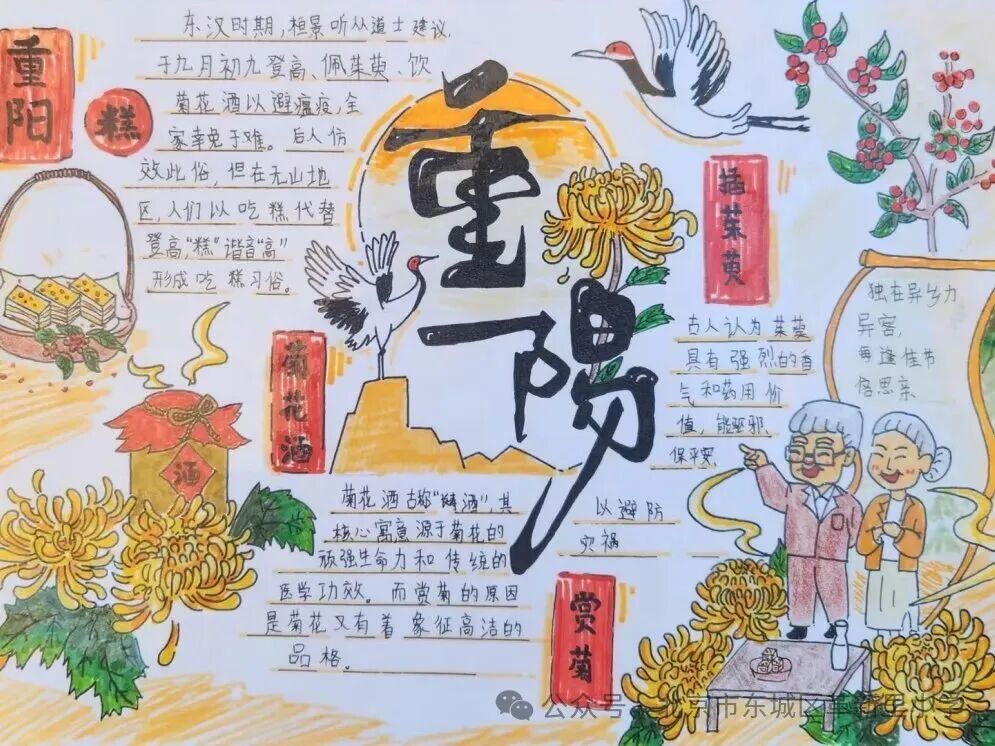 重阳
糕
东汉时期,桓景听从道士建议,
于九月初九登高、佩茱萸、饮
菊花酒以避瘟疫,全
家幸免于难。后人仿
效此俗,但在无山地
区,人们以吃糕代替
登高,“糕”谐音“高”
形成吃糕习俗。
重
陽
插茱萸
古人认为茱萸
具有强烈的香
气和药用价
值,能驱邪、
保平安
以避防
灾祸
独在异乡为
异客,
每逢佳节
倍思亲
菊花酒
酒
菊花酒古称“酒”,其
核心寓意源于菊花的
顽强生命力和传统的
医学功效。而赏菊的原因
是菊花又有着象征高洁的
品格。
赏菊
公众号 京市东城区 里中学